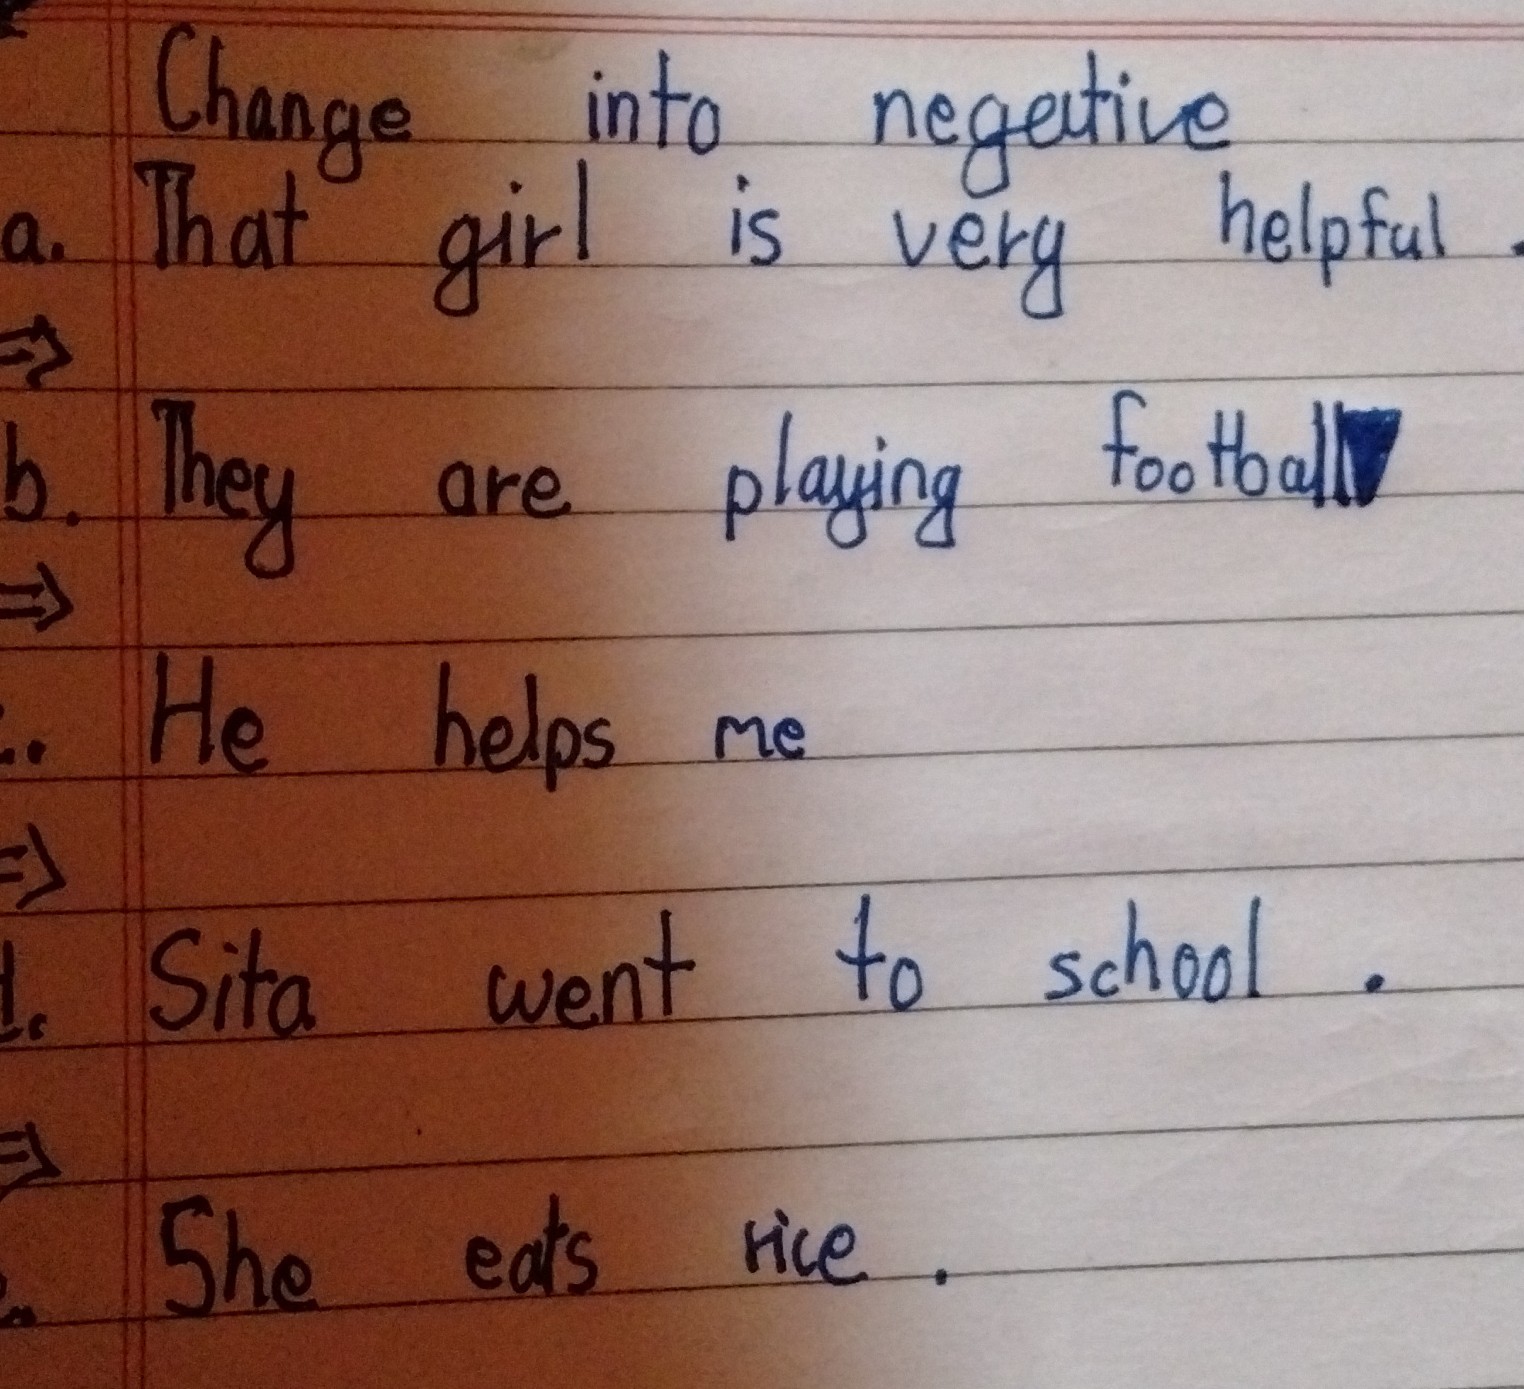 Change into negative
a. That girl is very helpful.
⇒
b. They are playing football
⇒
c. He helps me
⇒
d. Sita went to school.
⇒
She eats rice.